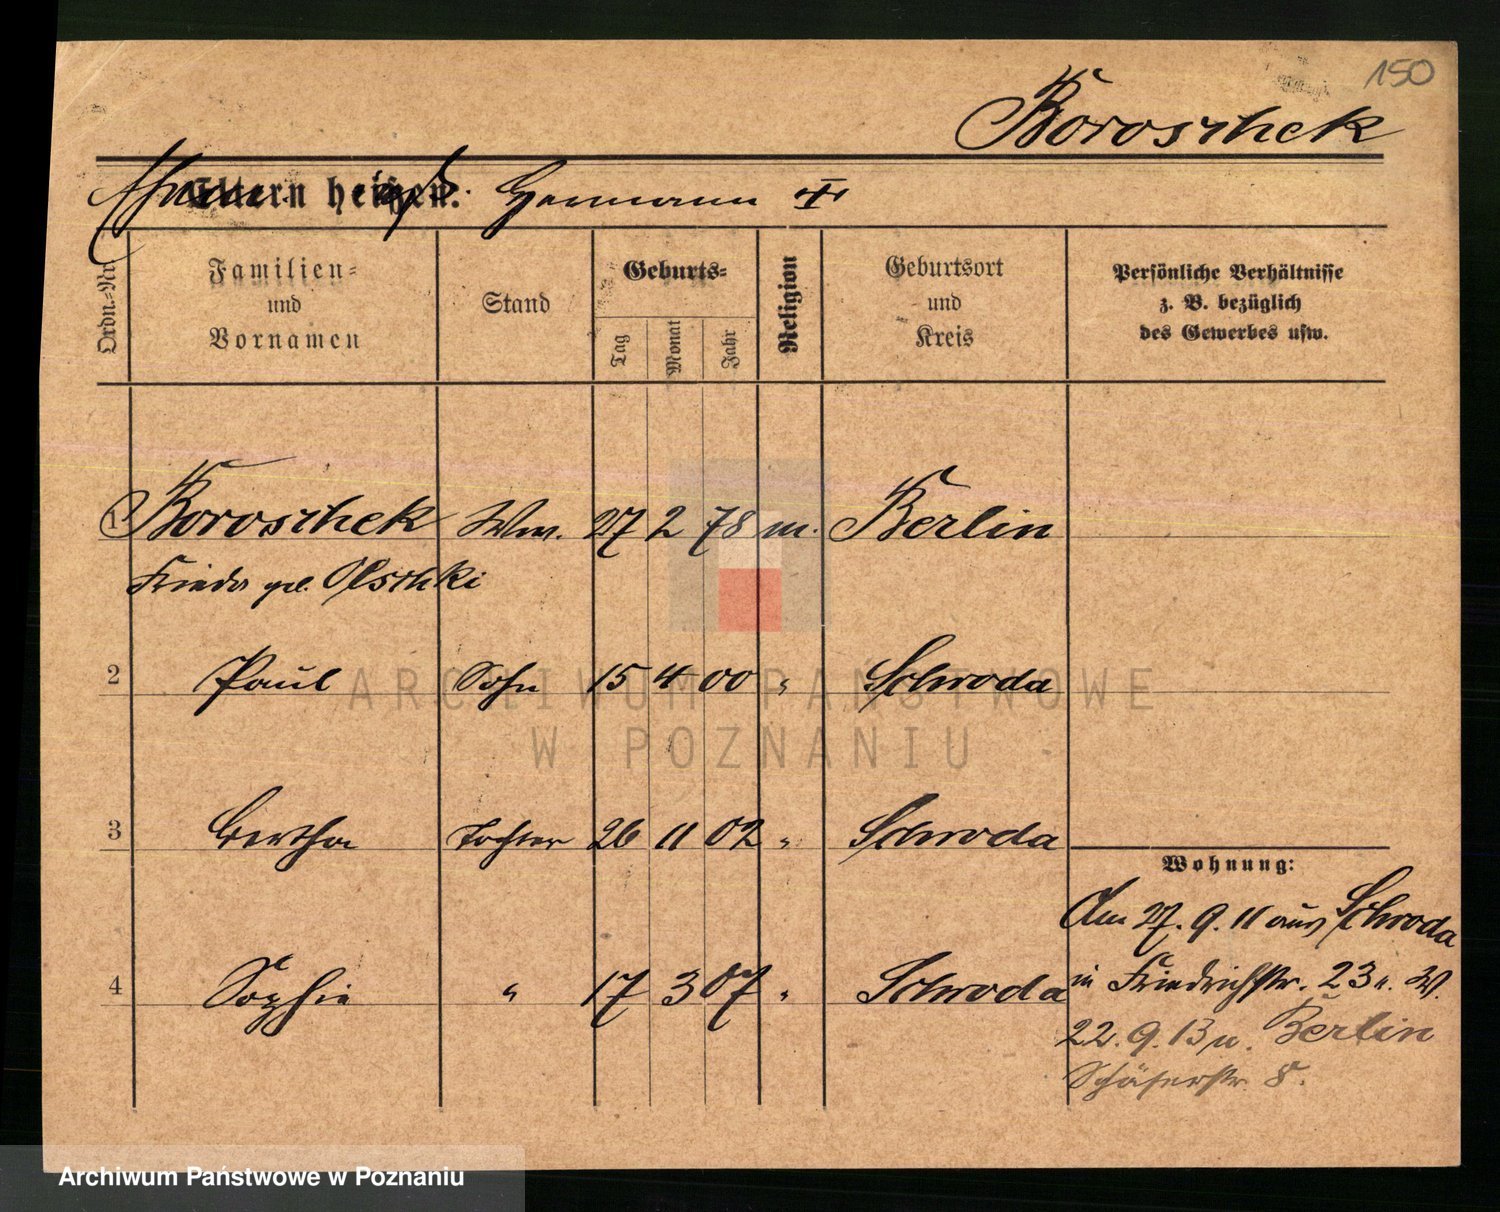 150
Boroschek
Eltern heißen: Hermann
Ordn.-Nr.
Familien-
und
Vornamen
Stand
Geburts-
Tag
Monat
Jahr
Religion
Geburtsort
und
Kreis
Persönliche Verhältnisse
z. B. bezüglich
des Gewerbes usw.
1 Boroschek Ww. 27 2 78 m. Berlin
Frieda geb. Olschki
2 Paul Sohn 15 4 00 " Schroda
3 Bertha Tochter 26 11 02 " Schroda
Wohnung:
Am 27. 9. 11 aus Schroda
4 Sophie " 17 3 07 " Schroda
in Friedrichstr. 23 n. W.
22. 9. 13 n. Berlin
Schäferstr. 8.
ARCHIWUM PAŃSTWOWE
W POZNANIU
Archiwum Państwowe w Poznaniu